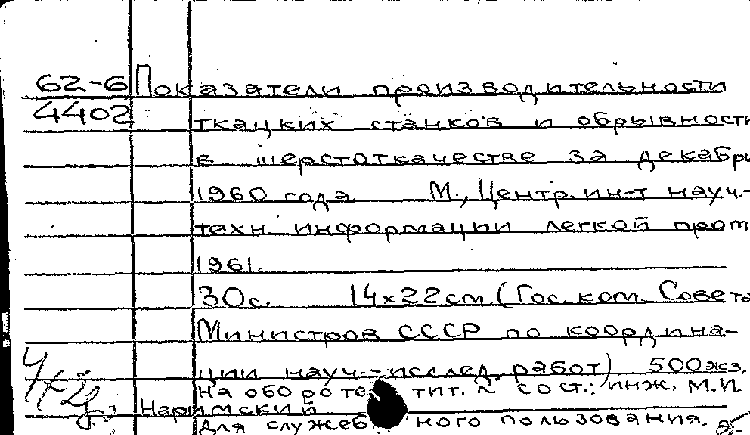 62-6 Показатели производительности
4402 ткацких станков и обрывности
в шерстоткачестве за декабрь
1960 года М., Центр. ин-т науч.-
техн. информации легкой пром
1961.
30с. 14х22см (Гос. ком. Совета
Министров СССР по координа-
ции науч.-исслед. работ) 500экз.
На обороте тит. л. сост.: инж. М.И.
Наримский.
Для служебного пользования.